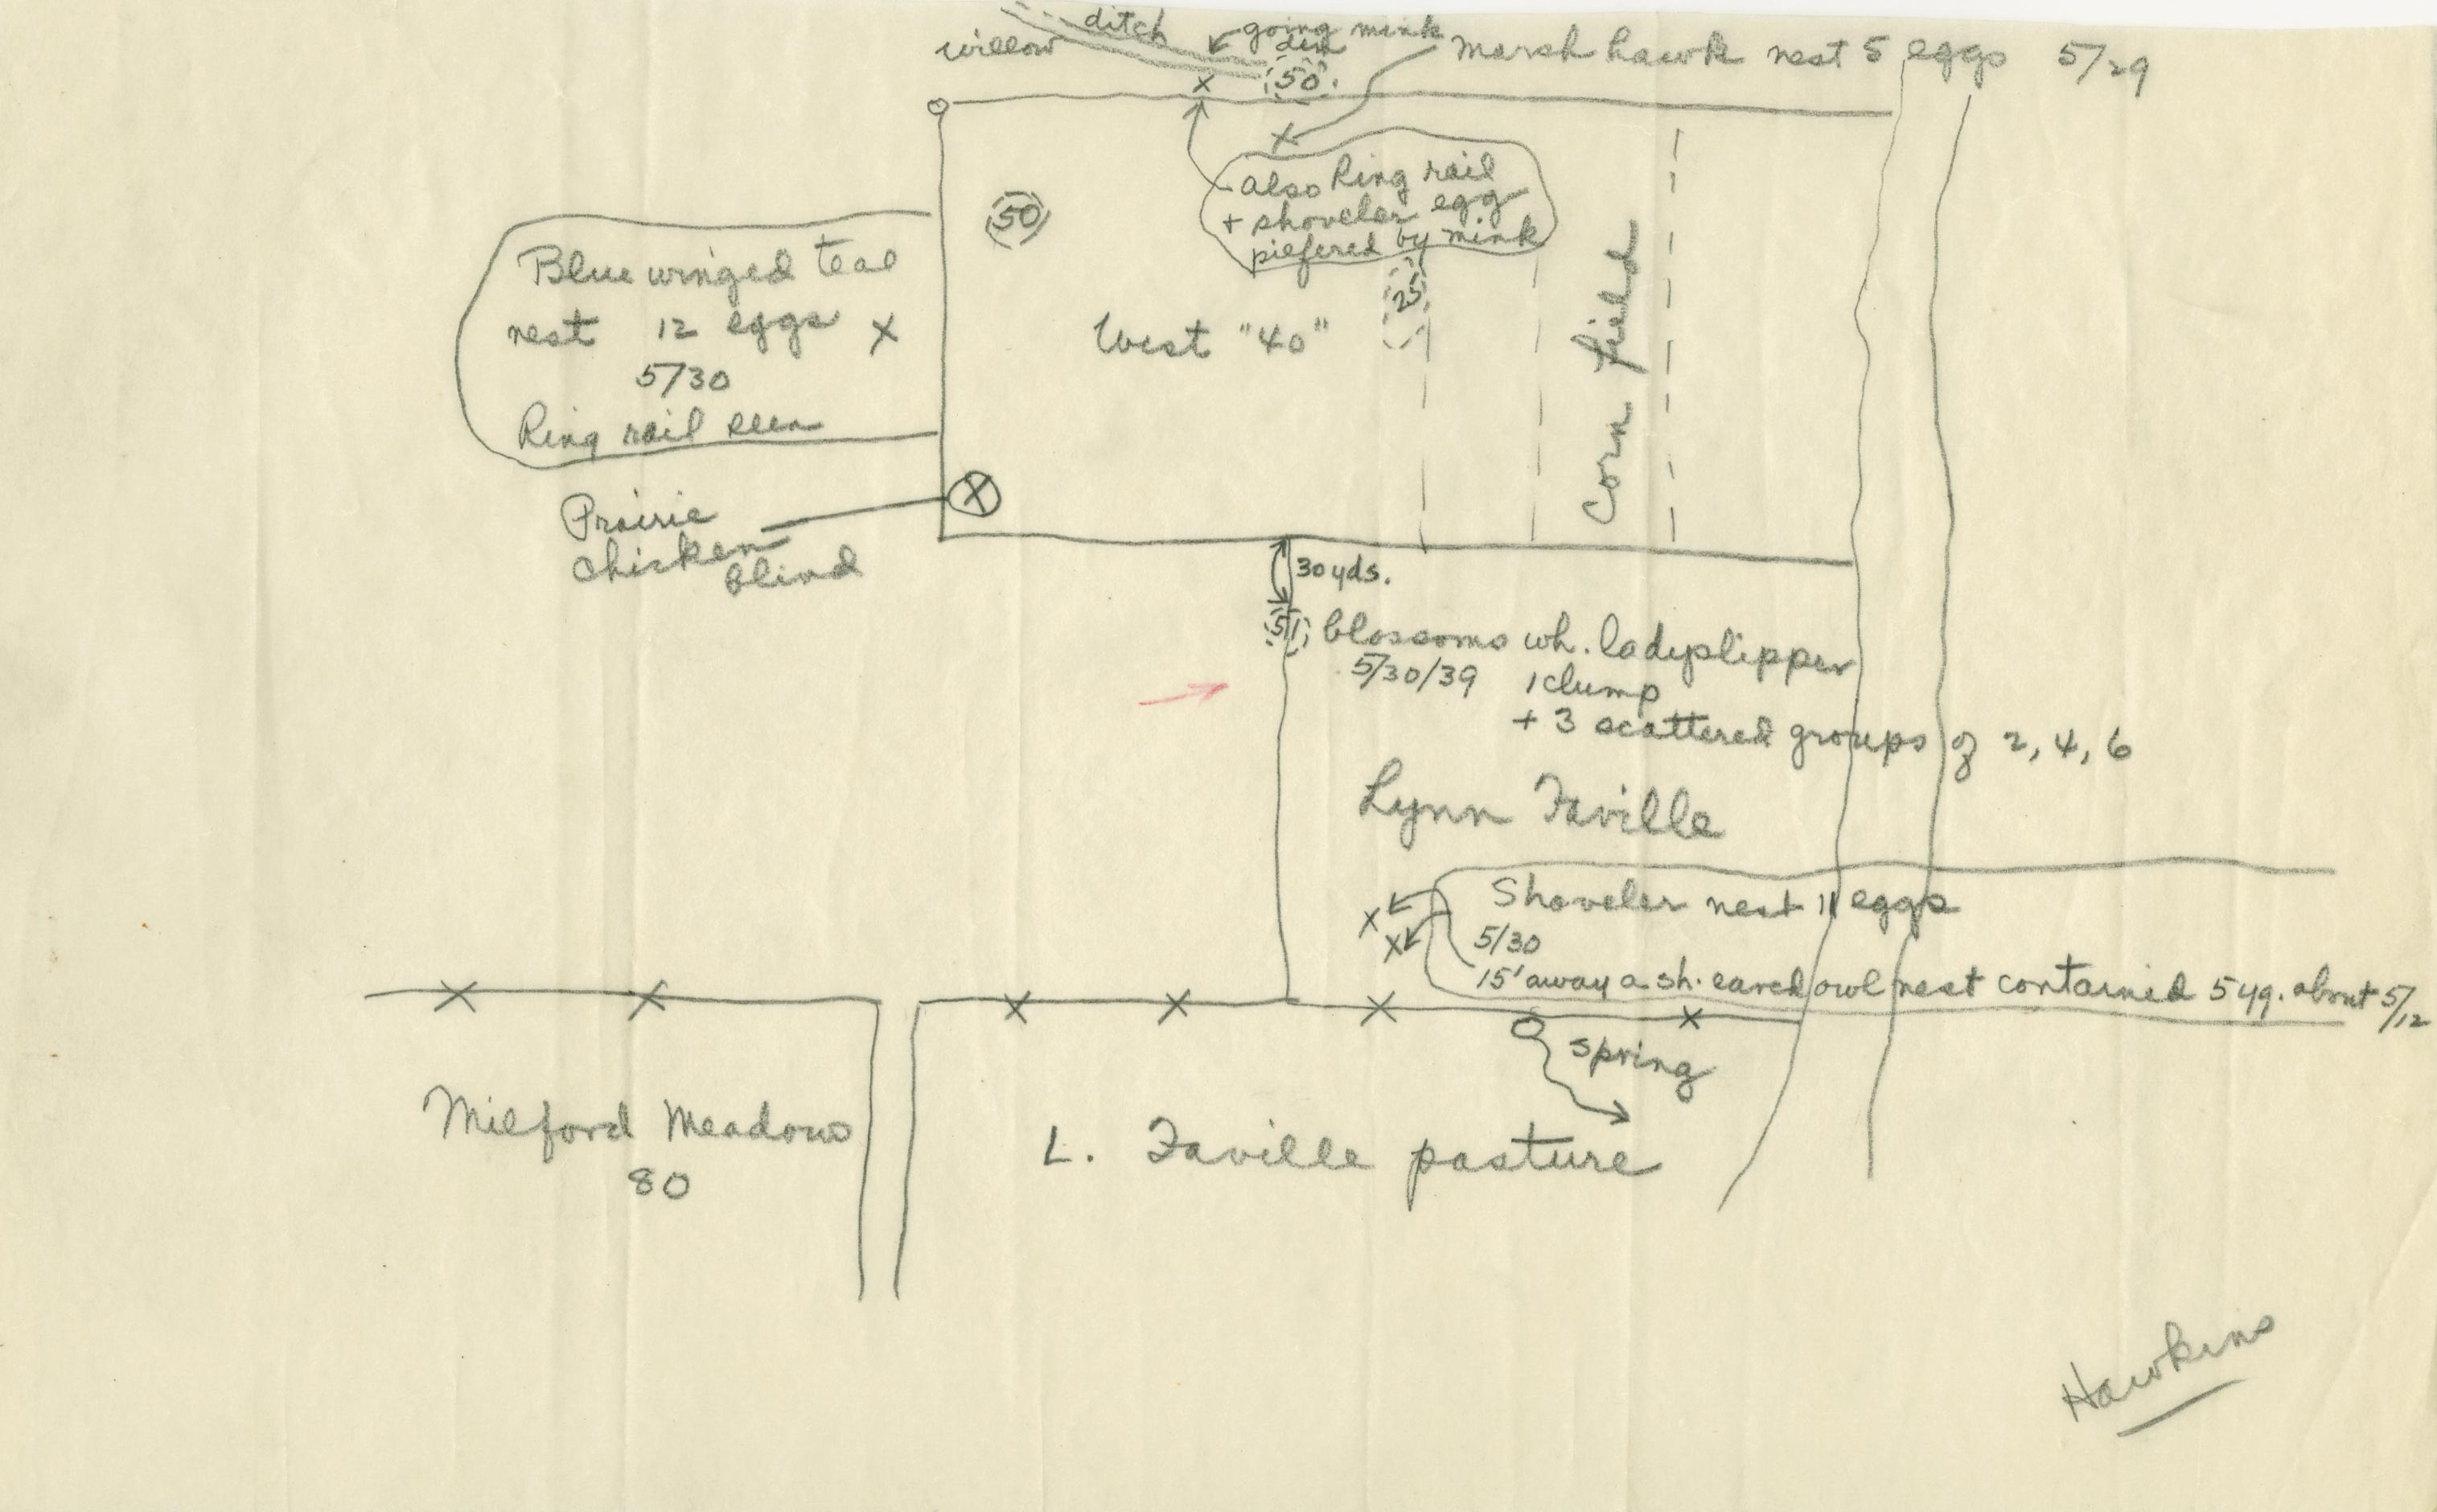 ditch
willow
going mink
den
50
Marsh hawk nest 5 eggs 5/29
also King rail
+ shoveler egg
pilfered by mink
50
25
Blue winged teal
nest 12 eggs X
5/30
King rail seen
West "40"
Corn field
Prairie
chicken
blind
30 yds.
51 blossoms wh. ladyslipper
5/30/39 1 clump
+ 3 scattered groups of 2, 4, 6
Lynn Faville
Shoveler nest 11 eggs
5/30
15' away a sh. eared owl nest contained 5 yg. about 5/12
spring
Milford Meadows
80
L. Faville pasture
Hawkins